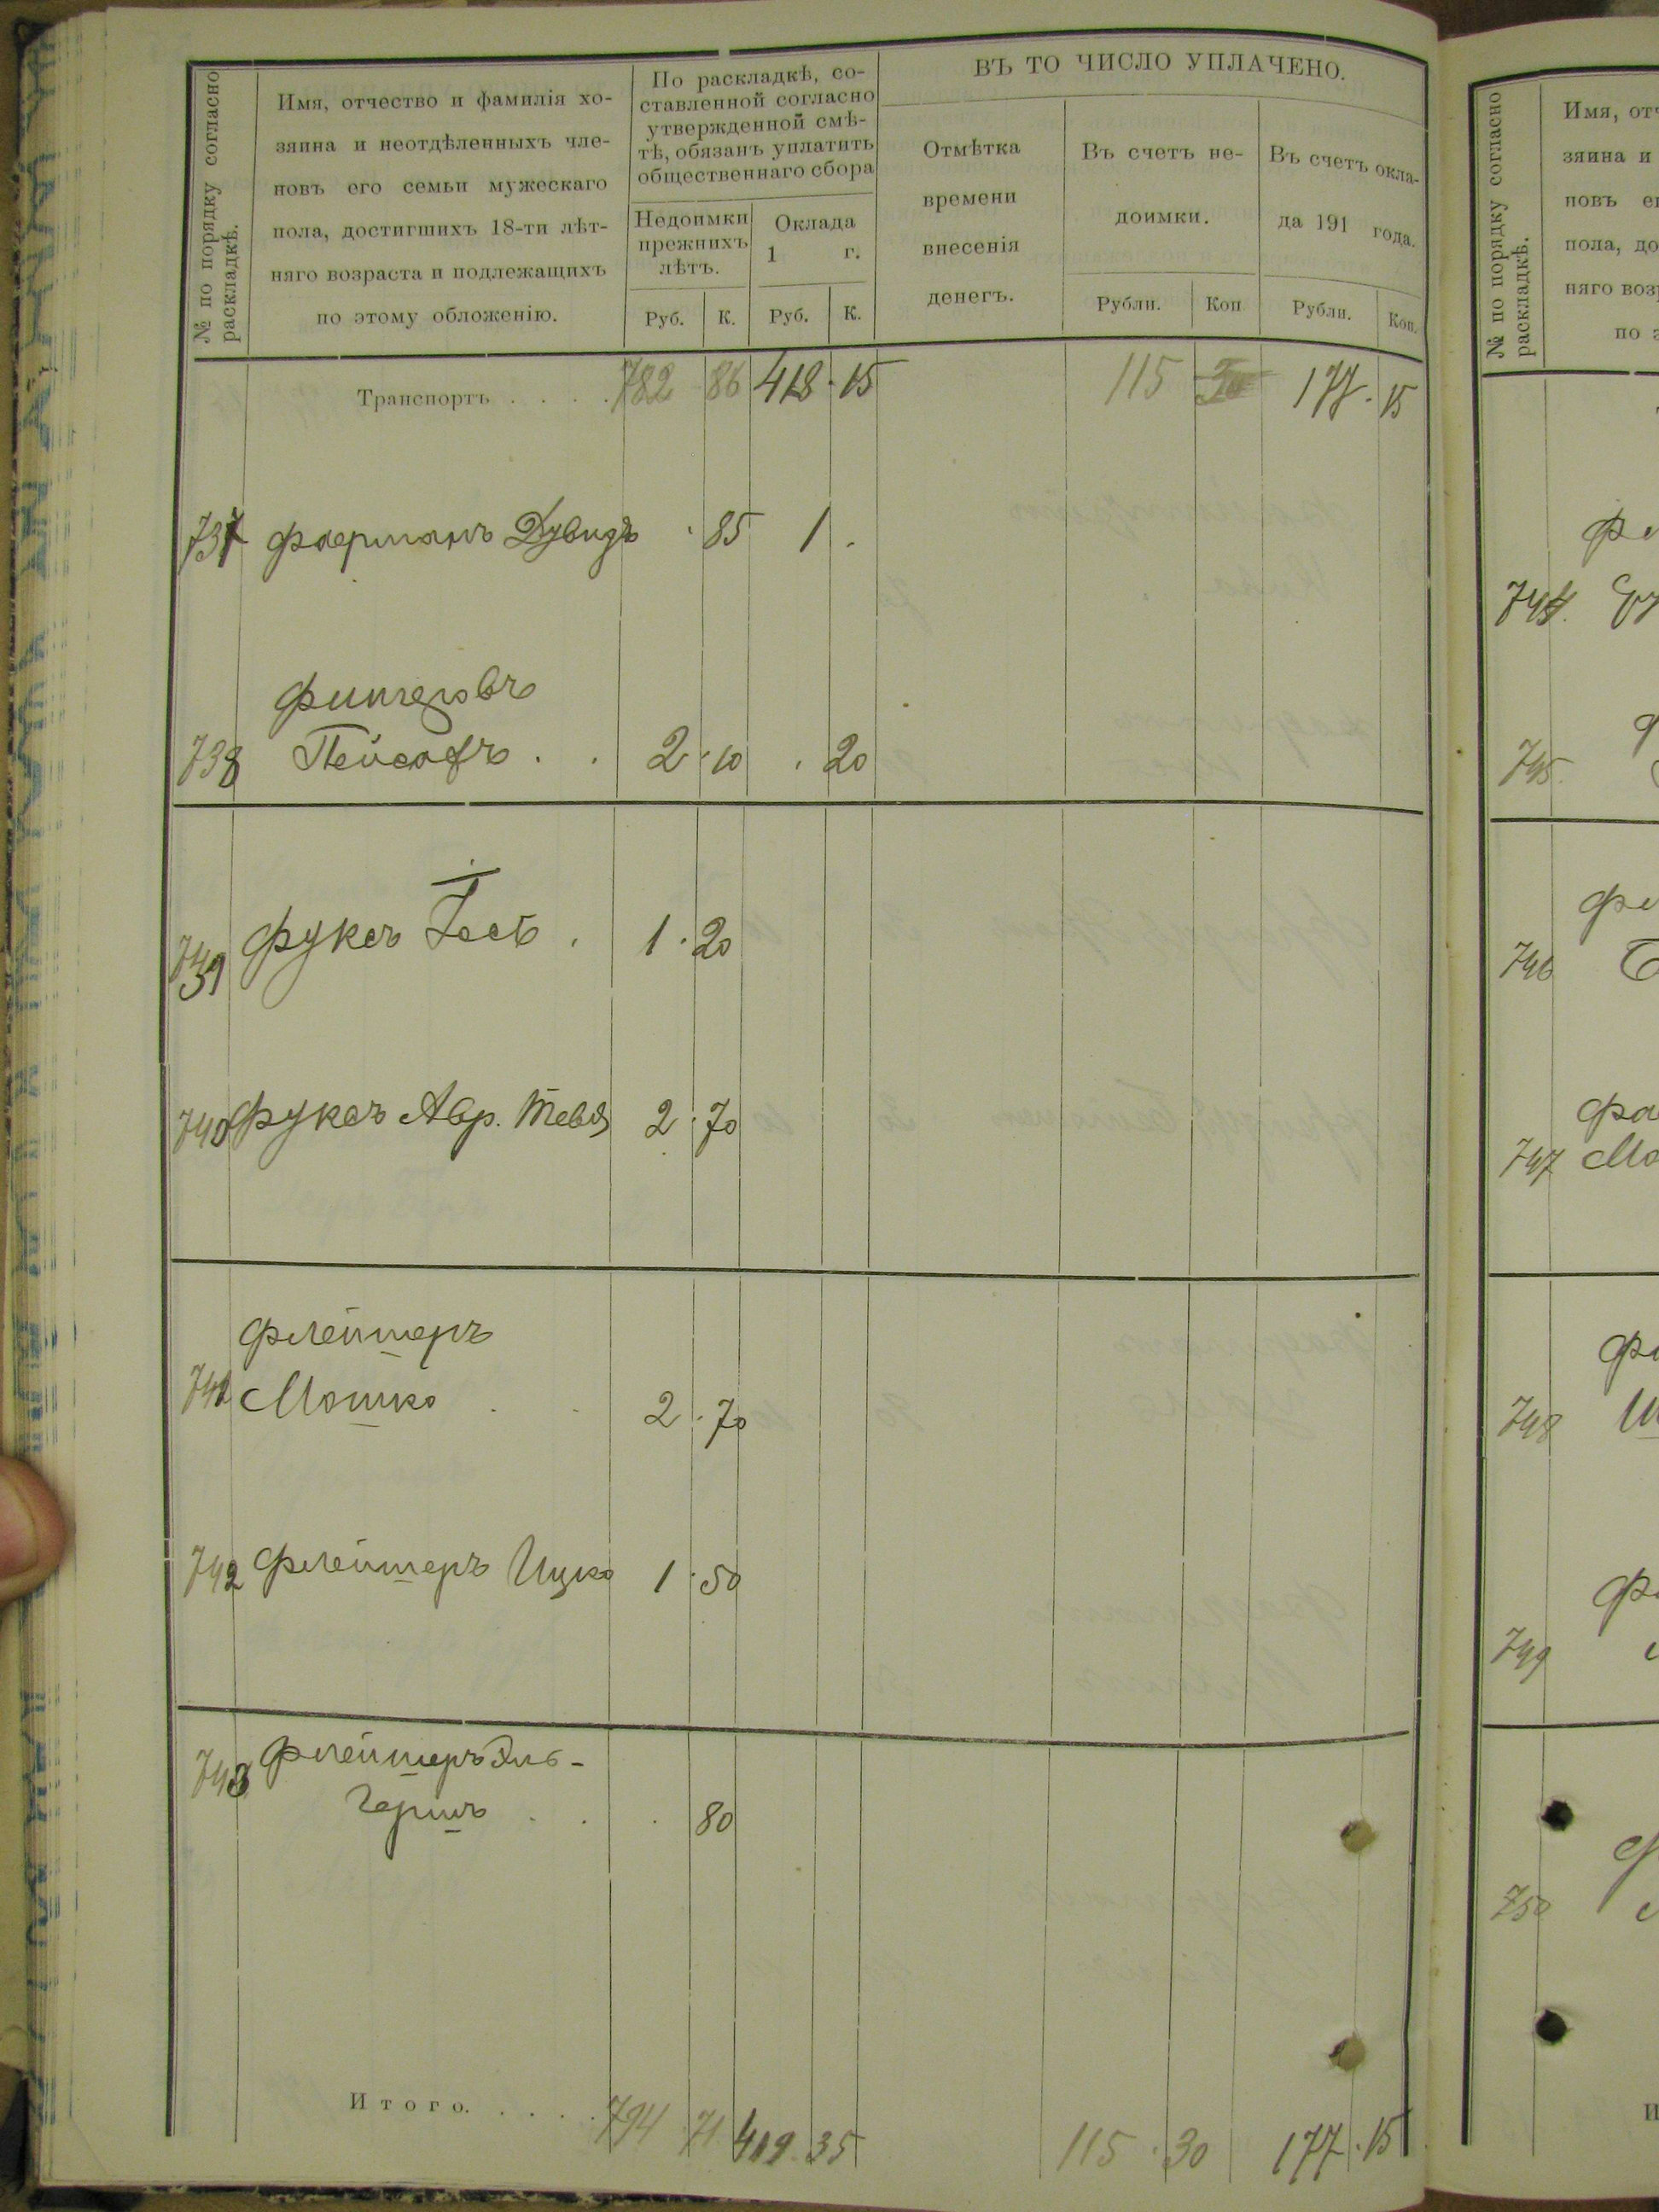 № по порядку согласно раскладкѣ.
Имя, отчество и фамилія хо-
зяина и неотдѣленныхъ чле-
новъ его семьи мужескаго
пола, достигшихъ 18-ти лѣт-
няго возраста и подлежащихъ
по этому обложенію.
По раскладкѣ, со-
ставленной согласно
утвержденной смѣ-
тѣ, обязанъ уплатить
общественнаго сбора
Недоимки
прежнихъ
лѣтъ.
Оклада
1 г.
Руб. К. Руб. К.
ВЪ ТО ЧИСЛО УПЛАЧЕНО.
Отмѣтка
времени
внесенія
денегъ.
Въ счетъ не-
доимки.
Рубли. Коп
Въ счетъ окла-
да 191 года.
Рубли. Коп.
Транспортъ . . . . 782 86 418 . 15 115 177 . 15
737 Фаерманъ Дувидъ . 85 1 .
738 Пейсахъ . . 2 . 10 . 20
739 Фуксъ Іось . 1 . 20
740 Фуксъ Авр. Тевя 2 . 70
Флейшеръ
741 Мошко . . 2 . 70
742 Флейшеръ Ицко 1 . 50
743 Флейшеръ Эль-
Гершъ . . . 80
Итого. . . . . 794 71 419 . 35 115 . 30 177 . 15
№ по порядку согласно раскладкѣ.
Имя, отч
зяина и
новъ ег
пола, до
няго возр
по э
744.
745.
746
747 Мо
748
749
750